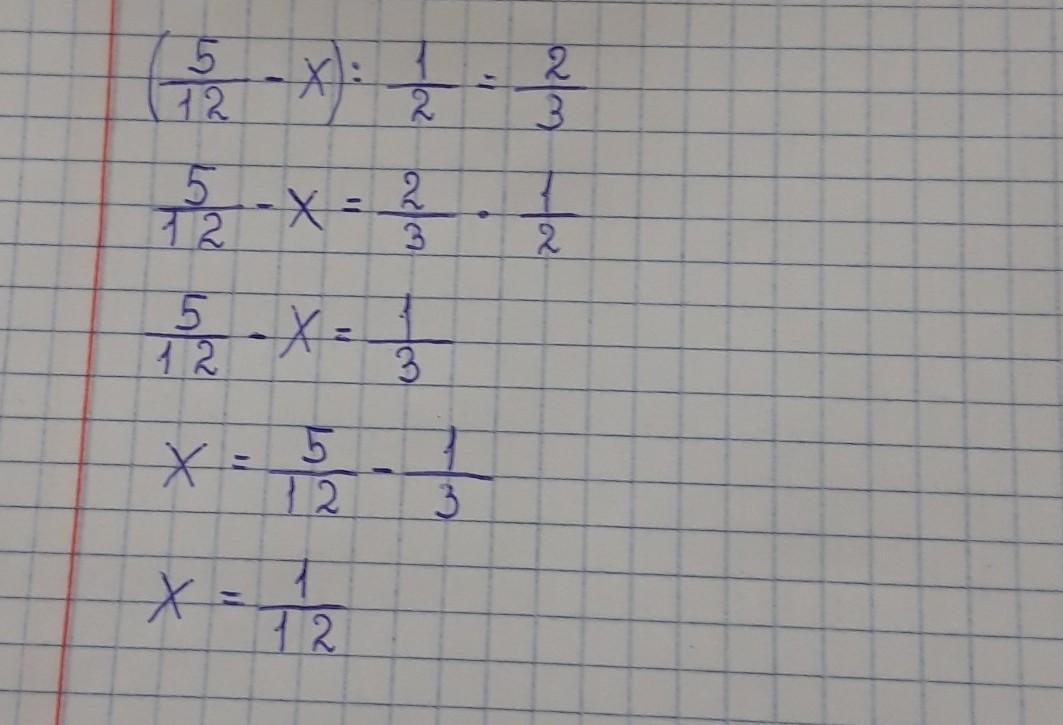 (5/12 - x) : 1/2 = 2/3
5/12 - x = 2/3 · 1/2
5/12 - x = 1/3
x = 5/12 - 1/3
x = 1/12